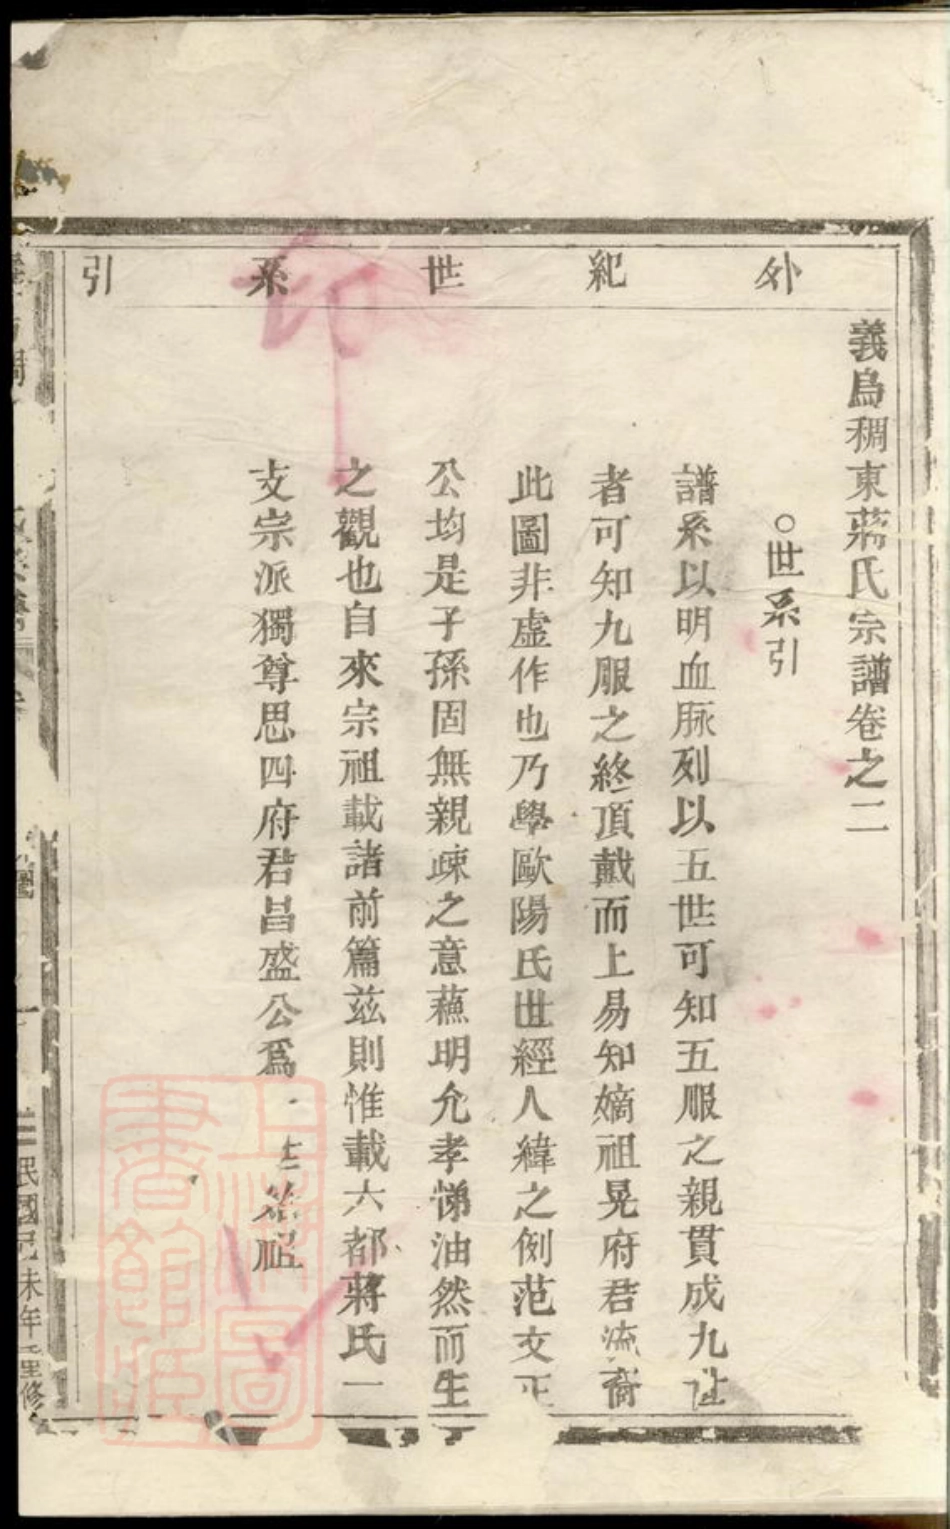 外紀世系引
義烏稠東蔣氏宗譜卷之二
○世系引
譜系以明血脉列以五世可知五服之親貫成九世
者可知九服之終頂戴而上易知嫡祖晃府君流裔
此圖非虛作也乃學歐陽氏世經人緯之例范文正
公均是子孫固無親疎之意蘓明允孝悌油然而生
之觀也自來宗祖載諸前篇兹則惟載六都蔣氏一
支宗派獨尊思四府君昌盛公爲一世始祖
民國己未年重修
上海圖書館藏